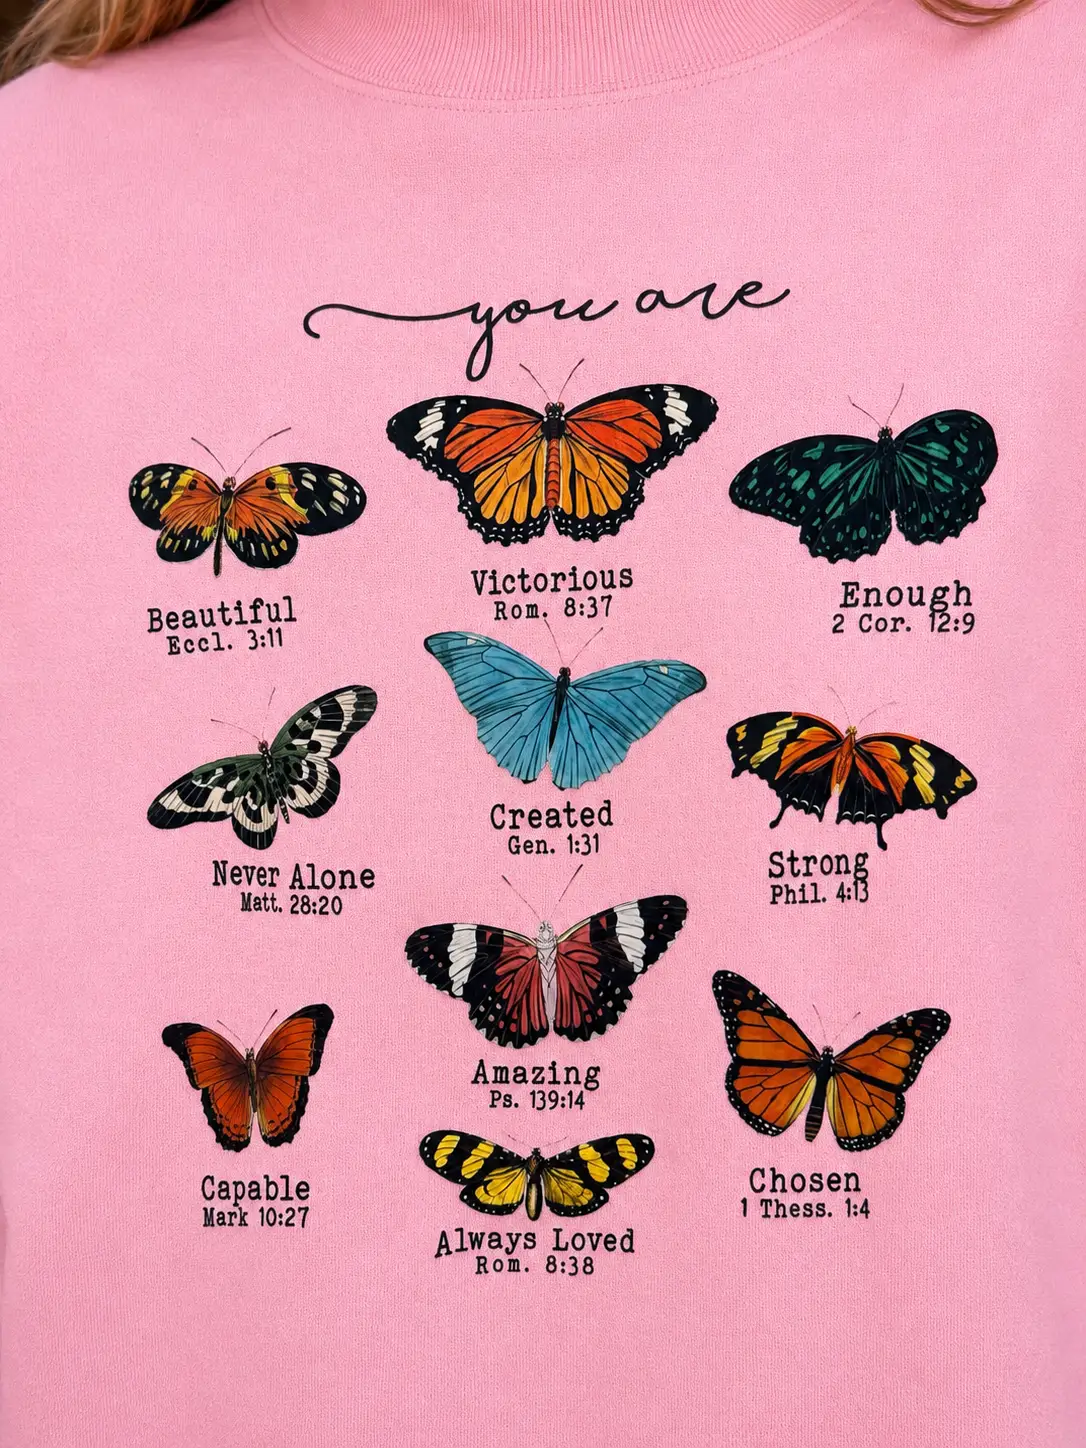 you are
Beautiful
Eccl. 3:11
Victorious
Rom. 8:37
Enough
2 Cor. 12:9
Never Alone
Matt. 28:20
Created
Gen. 1:31
Strong
Phil. 4:13
Amazing
Ps. 139:14
Capable
Mark 10:27
Always Loved
Rom. 8:38
Chosen
1 Thess. 1:4